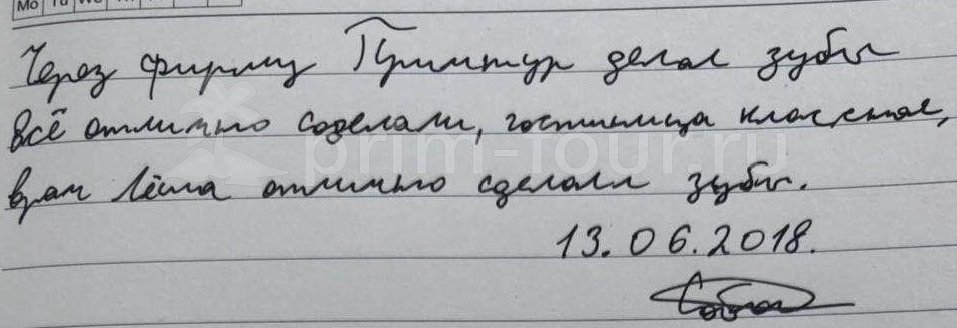 Mo Tu We
Через фирму Примтур делал зубы
всё отлично соделали, гостиница классная,
врач Лёша отлично сделал зубы.
prim-tour.ru
13.06.2018.